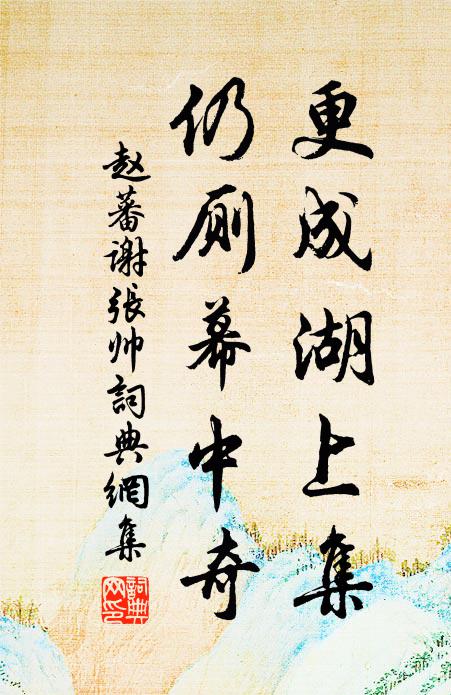 更成湖上集
仍厕幕中奇
赵蕃谢張帅詞典網集
詞典網印